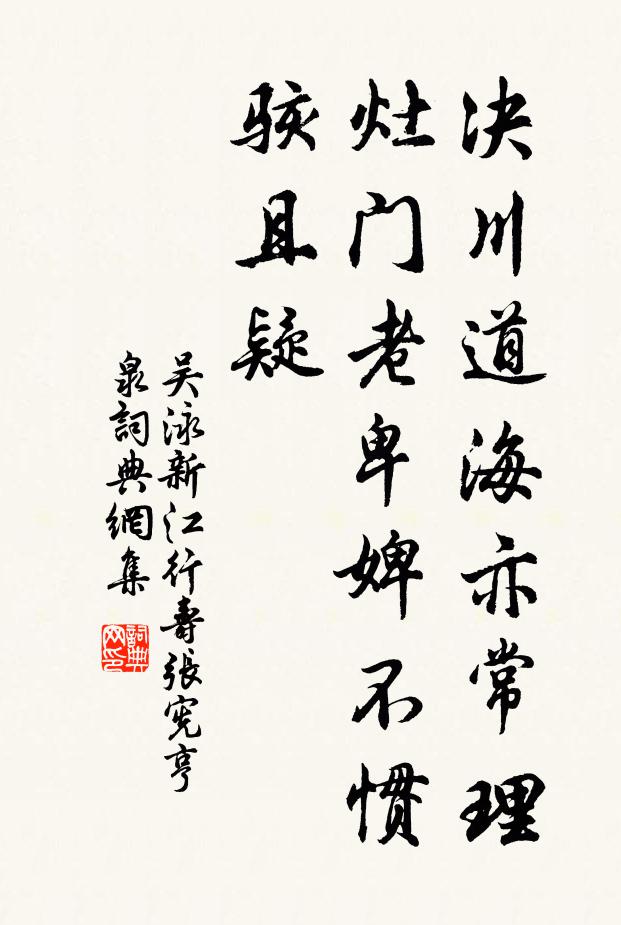 决川道海亦常理
灶门老卑婢不惯
骇且疑
吴泳新江行壽張宪亨
泉詞典網集
詞典网印